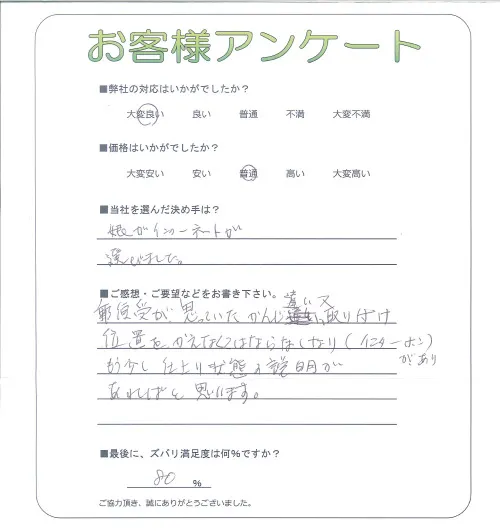 お客様アンケート
■弊社の対応はいかがでしたか？
大変良い 良い 普通 不満 大変不満
■価格はいかがでしたか？
大変安い 安い 普通 高い 大変高い
■当社を選んだ決め手は？
娘がインターネットが
選びました。
■ご感想・ご要望などをお書き下さい。
違い又
郵便受が、思っていたかんじ 取りはけ
位置をかえなくてはならなくなり（インターホン
があり
もう少し仕上り状態の説明が
あればと思います。
■最後に、ズバリ満足度は何％ですか？
80 ％
ご協力頂き、誠にありがとうございました。